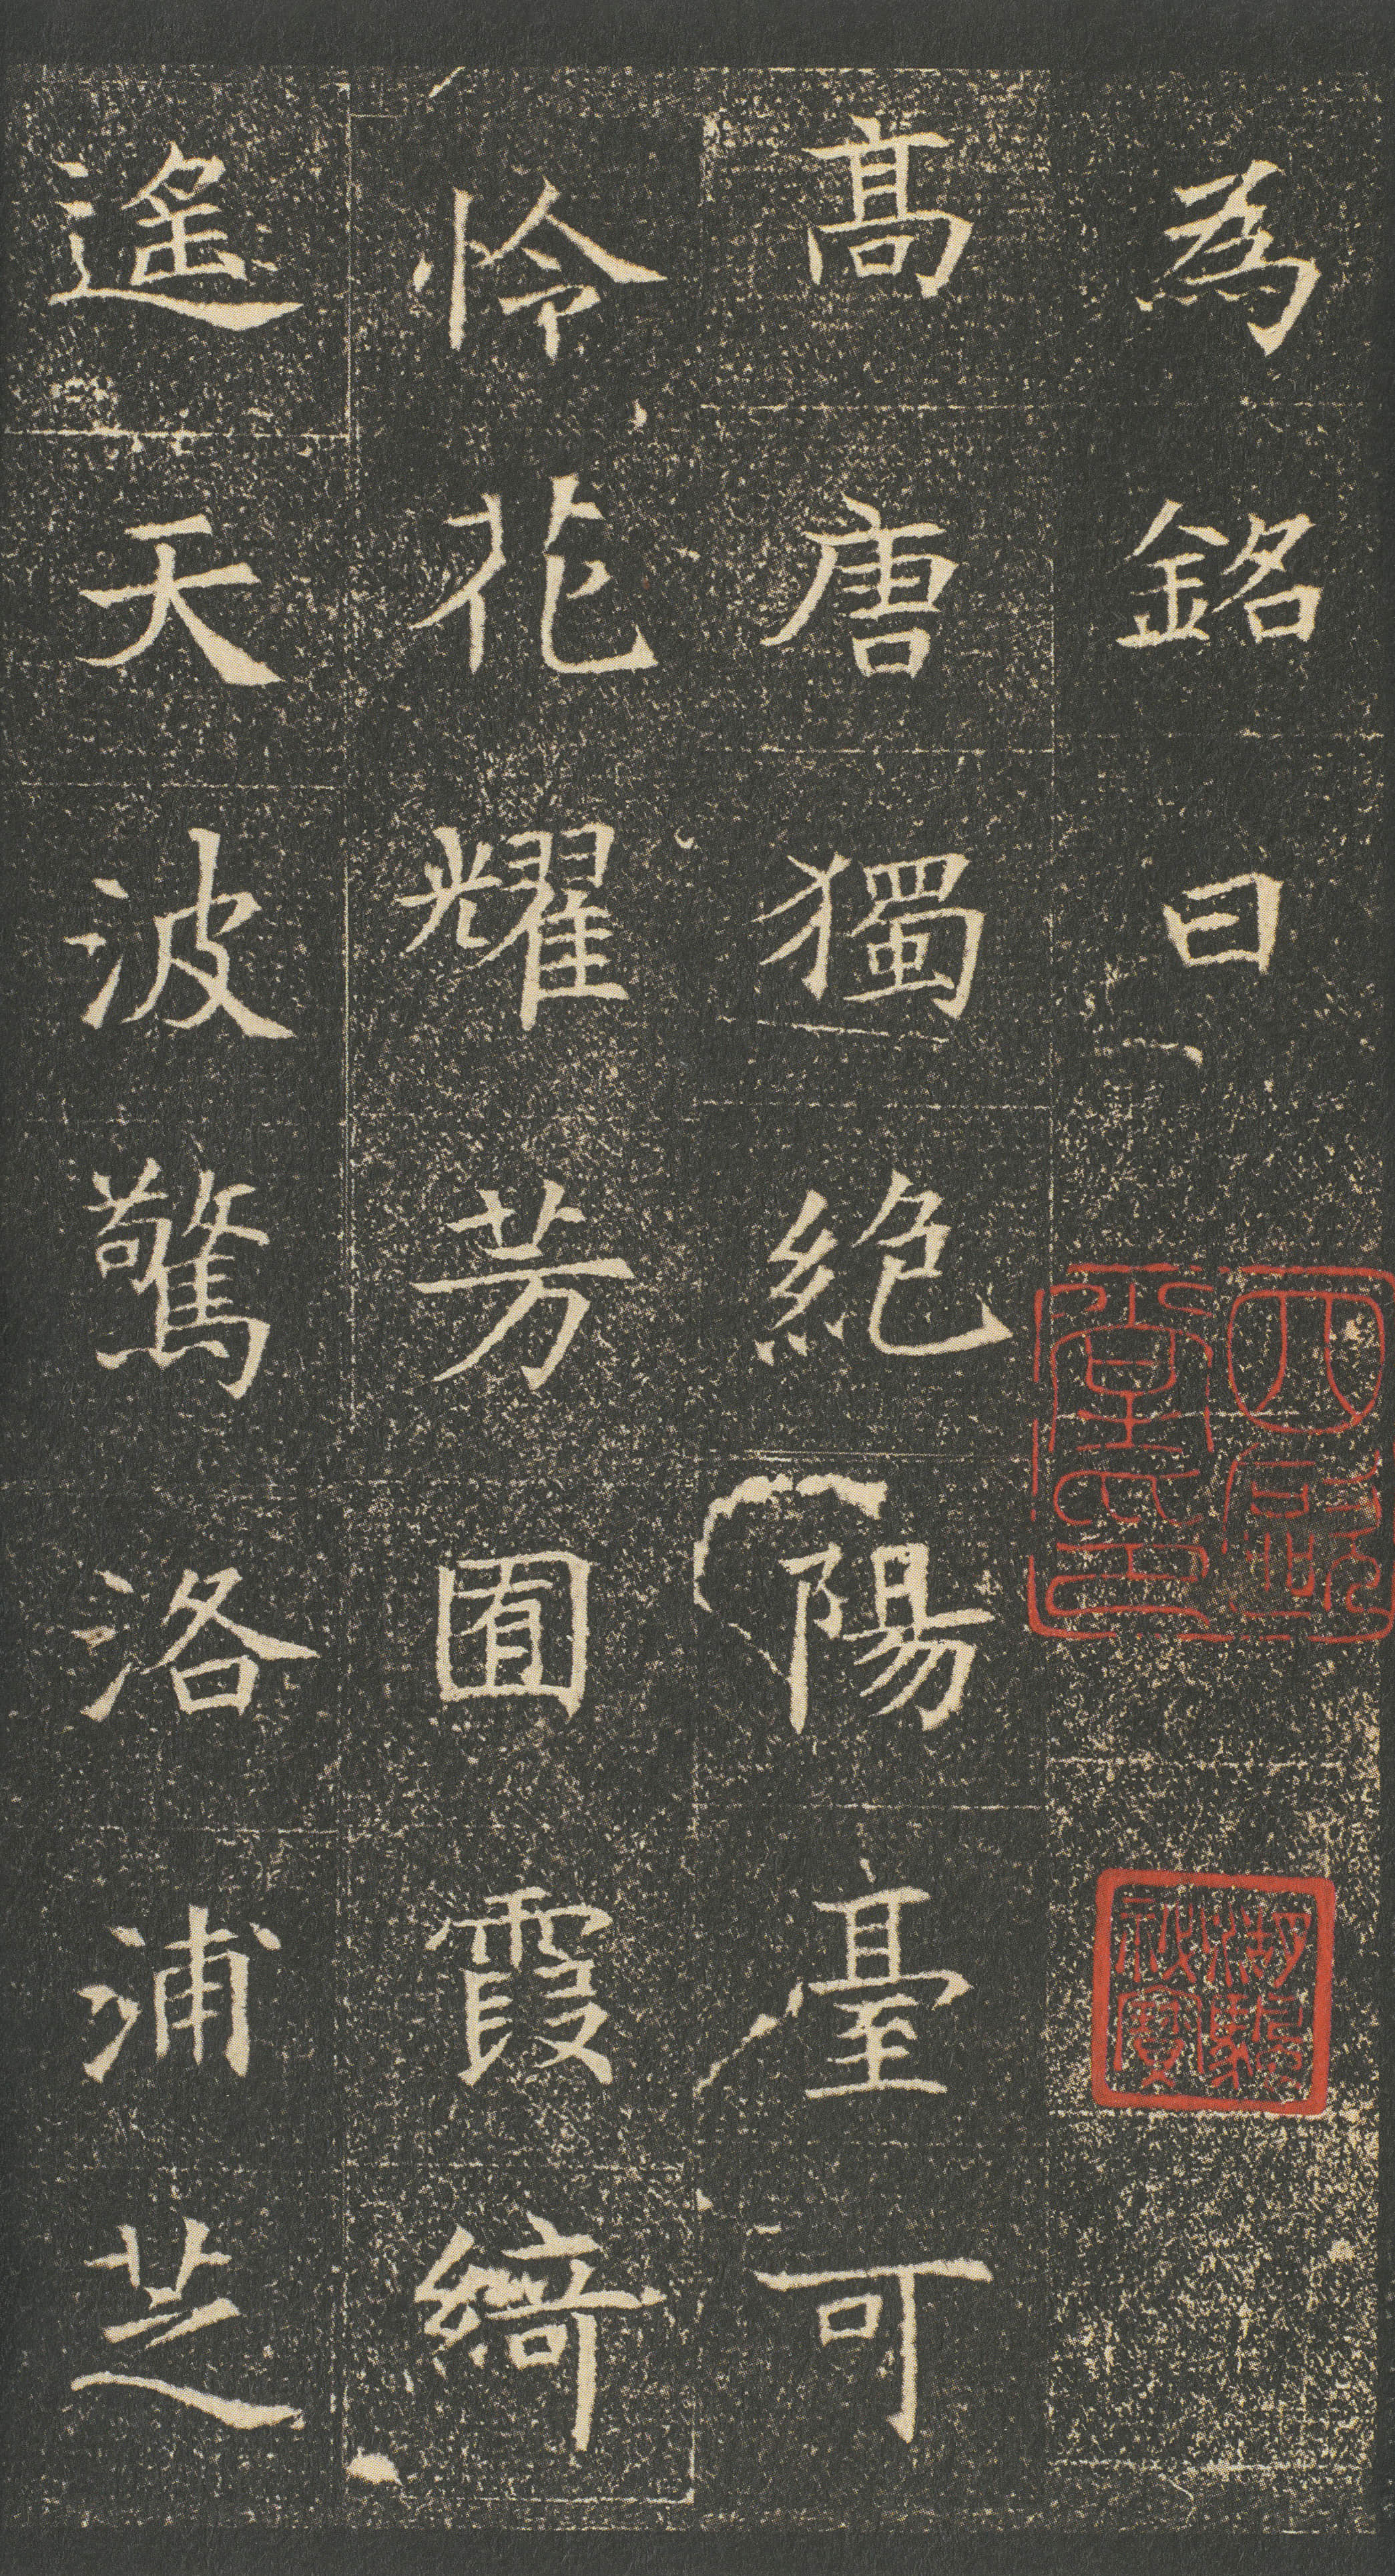 為銘曰
高唐獨絶陽臺可
怜花耀芳囿霞綺
遥天波驚洛浦芝